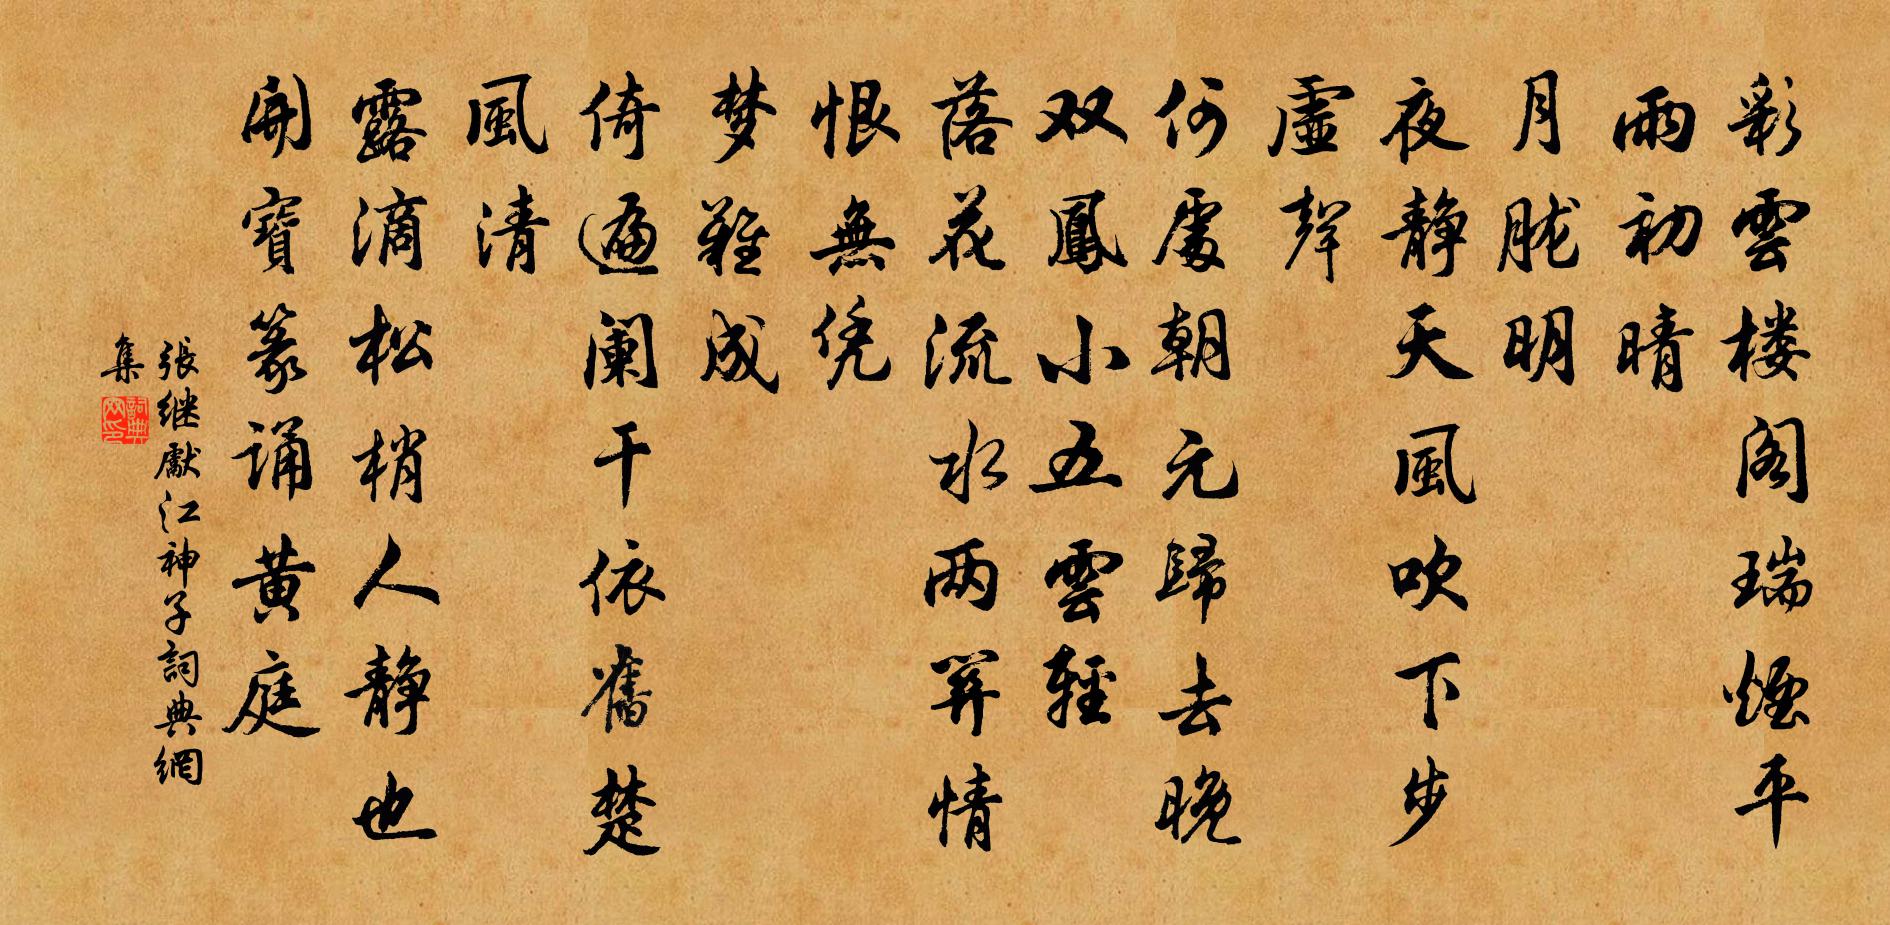 彩雲楼阁瑞煙平
雨初晴
月胧明
夜静天風吹下步
虚聲
何處朝元歸去晚
双鳳小五雲輕
落花流水两關情
恨無凭
梦難成
倚遍阑干依舊楚
風清
露滴松梢人静也
開寶篆诵黄庭
張继獻江神子詞典網
集
詞典网印